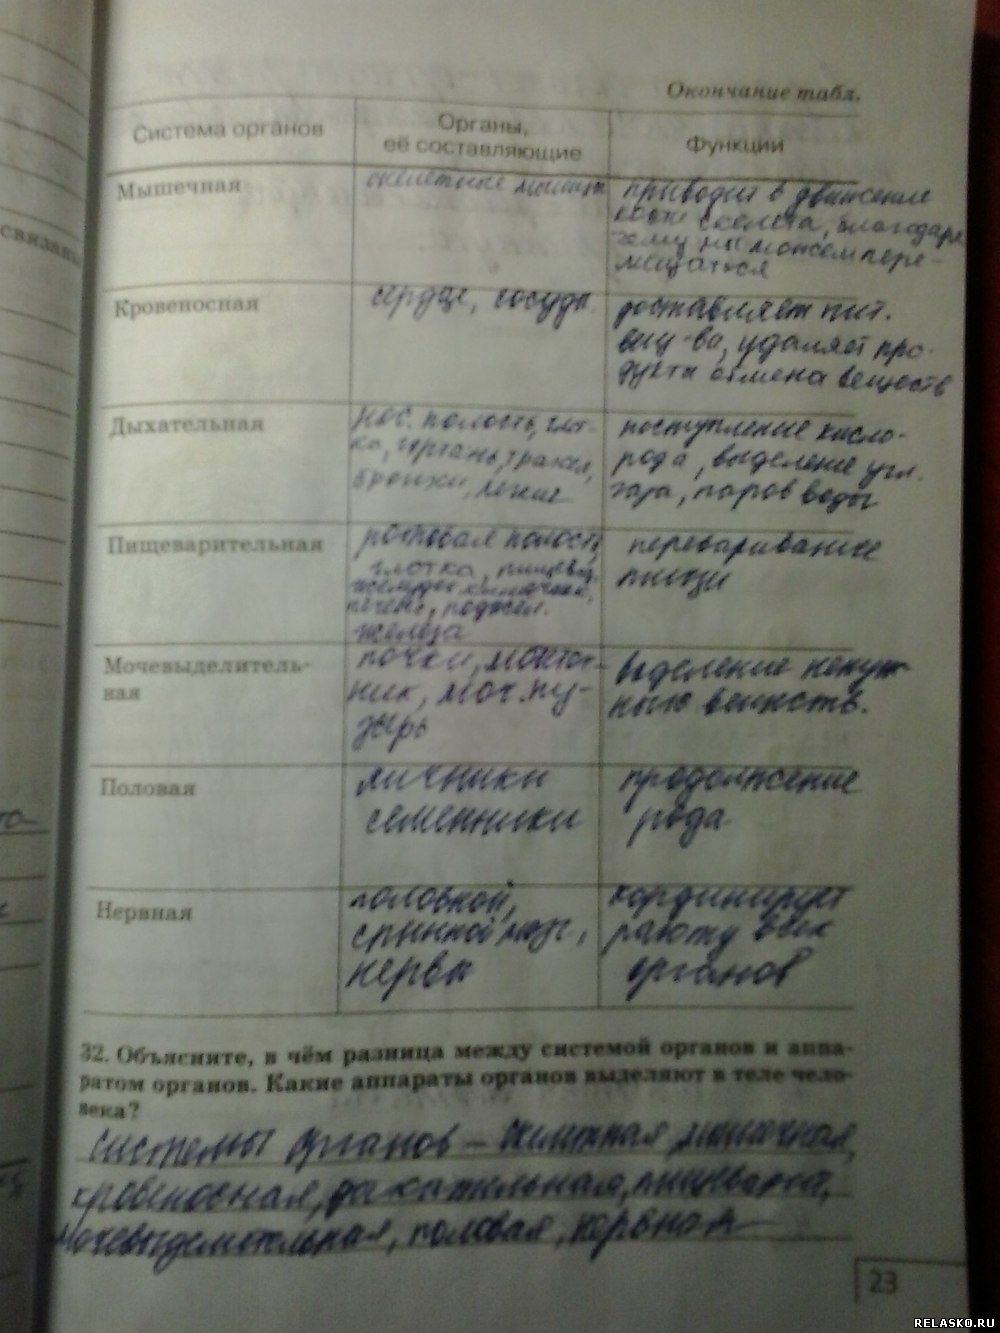 Окончание табл.
Система органов
Органы,
её составляющие
Функции
Мышечная
скелетные мышцы
приводит в движение
кости скелета, благодаря
чему мы можем пере-
мещаться
Кровеносная
сердце, сосуды.
доставляет пит.
вещ-ва, удаляет про-
дукты обмена веществ
Дыхательная
нос. полость, глот-
ка, гортань, трахея,
бронхи, легкие
поступление кисло-
рода, выделение угл.
газа, паров воды
Пищеварительная
ротовая полость,
глотка, пищевод,
желудок, кишечник,
печень, поджел.
железа
переваривание
пищи
Мочевыделитель-
ная
почки, мочеточ-
ник, моч. пу-
зырь
выделение ненуж
ных веществ.
Половая
яичники
семенники
продолжение
рода
Нервная
головной,
спинной мозг,
нервы
кординирует
работу всех
органов
32. Объясните, в чём разница между системой органов и аппа-
ратом органов. Какие аппараты органов выделяют в теле чело-
века?
системы органов – мышечная,
кровеносная, дыхательная, пищеварит,
мочевыделительная, половая, нервная
23
связан
RELASKO.RU